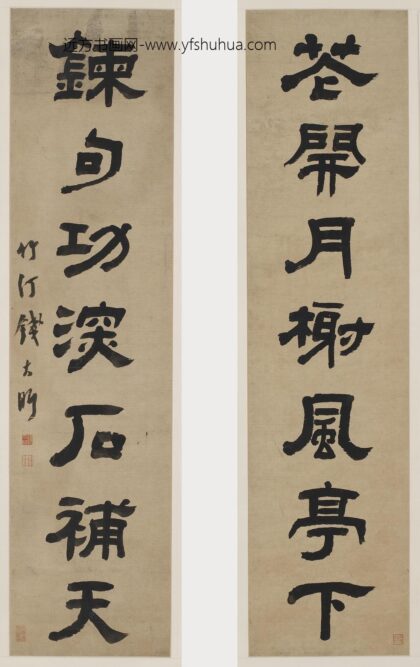 远方书画网-www.yfshuhua.com
花開月榭風亭下
鍊句功深石補天
竹汀錢大昕